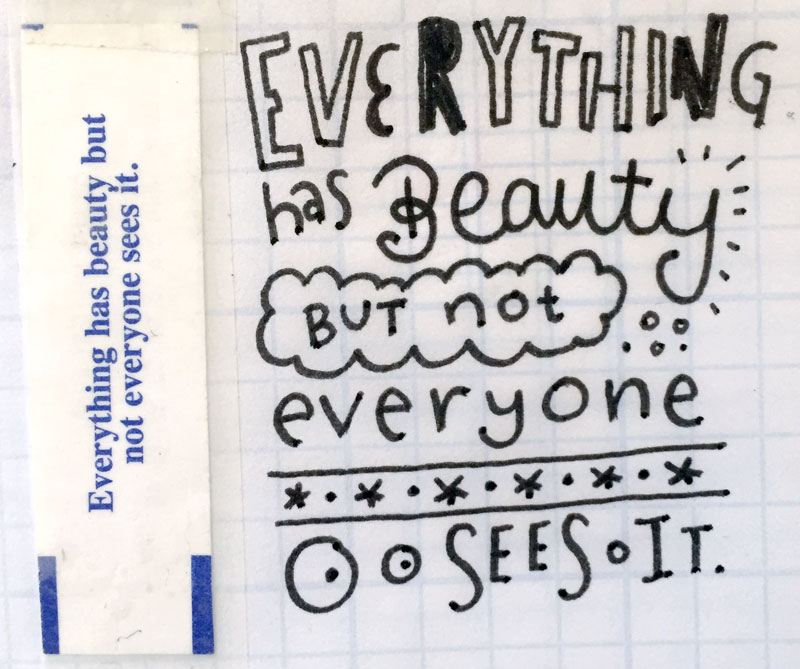 Everything has beauty but
not everyone sees it.
EVERYTHING
has Beauty
BUT not
everyone
SEES IT.